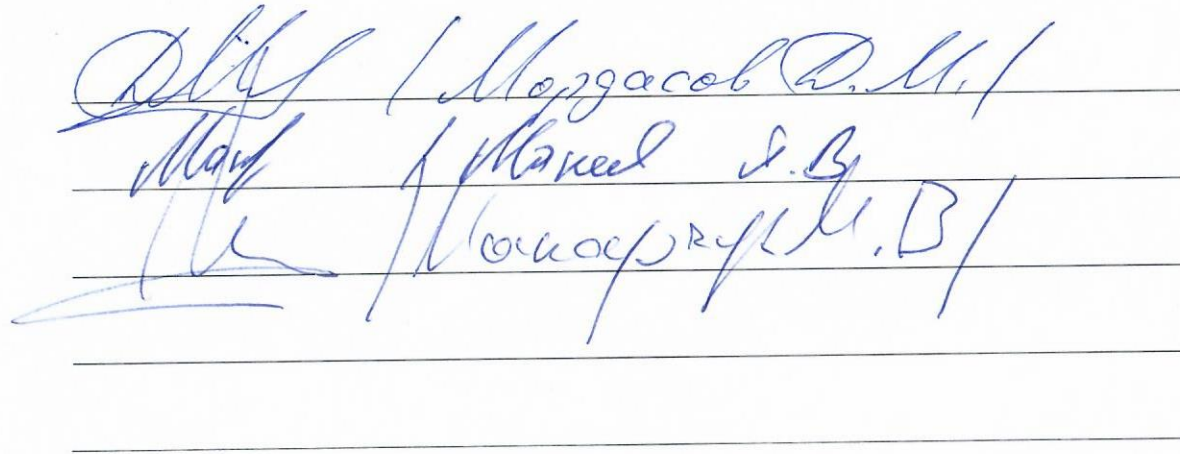 / Мордасов Д.М. /
/ Макеев Я.В.
/ Макарчук М.В /